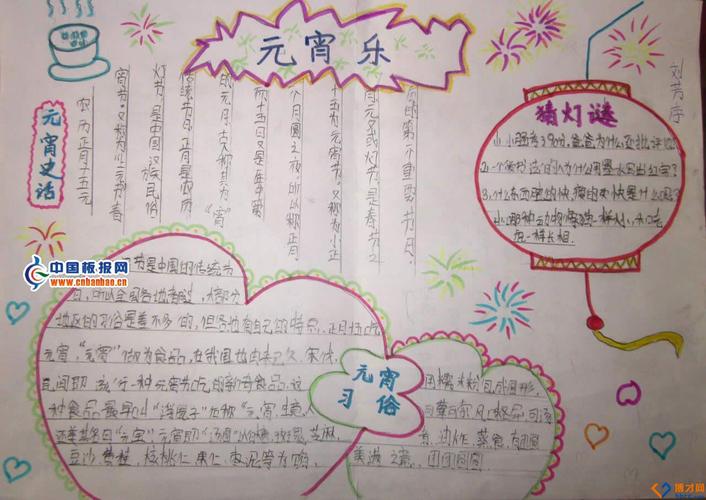 元宵乐
刘芳序
元宵史话
农历正月十五元
宵节，又称为上元节，春
灯节，是中国汉族民俗
传统节日。正月是农历
的元月，古人称其为“宵”
而十五日又是一年中第
一个月圆之夜，所以称正月
十五为元宵节。又称为小正
月、元夕或灯节，是春节之
后的第一个重要节日。
猜灯谜
为什么还批评
为什么用墨水写出红字？
3.什么东西
一样大小
一样长相
中国板报网
www.cnbanbao.cn
节是中国的传统节
日，所以全国各地都过，大部分
地区的习俗是差不多的，但各地有自己的特点。正月十五吃
元宵，“元宵”做为食品，在我国也由来已久。宋代，
民间即流行一种元宵节吃的新奇食品。这
种食品，最早叫“浮圆子”后称“元宵”，生意人
还美其名曰“元宝”。元宵即“汤圆”以白糖、玫瑰、芝麻、
豆沙、黄桂、核桃仁、果仁、枣泥等为馅，
元宵
习俗
用糯米粉包成圆形，
可荤可素，风味各异。可汤
煮、油炸、蒸食，有团圆
美满之意。团团圆圆
博才网